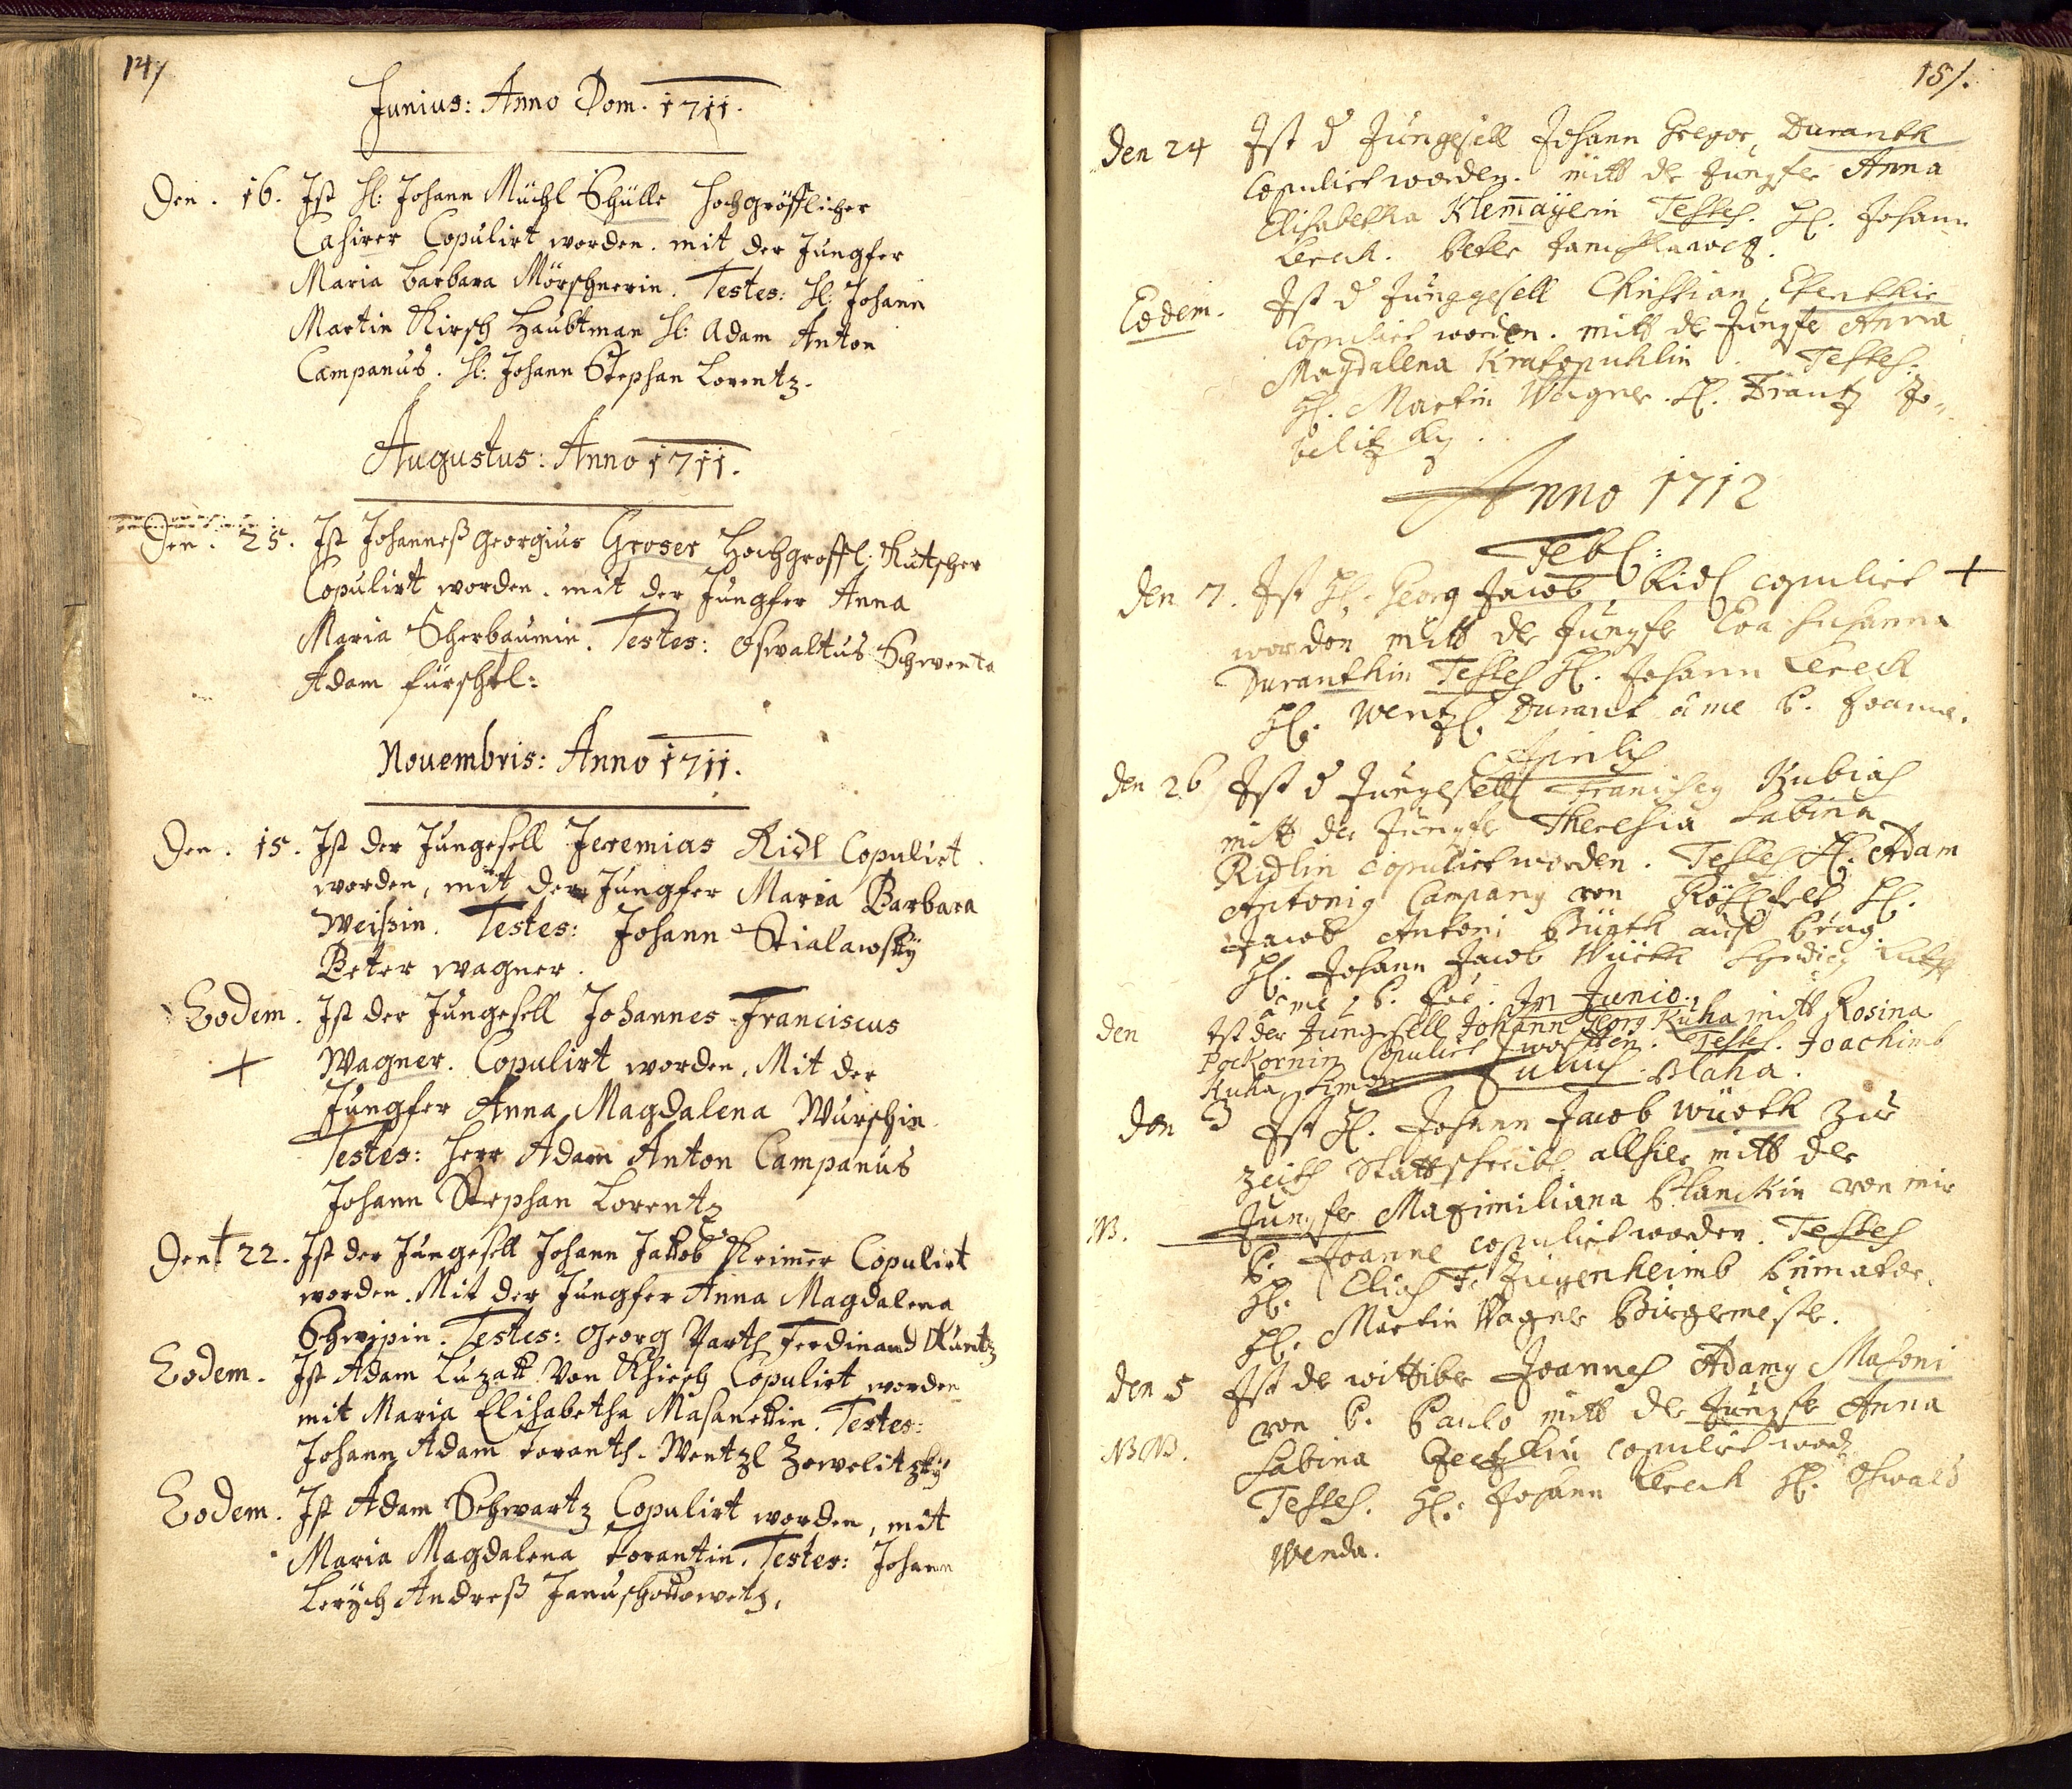 147
Junius: Anno Dom. 1711.
Den. 16. Ist H: Johann Michl Schülle Hochgröfflicher
Casirer Copulirt worden. mit der Jungfer
Maria Barbara Mörschnerin. Testes: H: Johann
Martin Kirsch Haubtman H: Adam Anton
Campanus. H: Johann Stephan Lorentz.
Augustus: Anno 1711.
Den. 25. Ist Johanneß Georgius Groser Hochgroffl: Kutscher
Copulirt worden. mit der Jungfer Anna
Maria Scherbaumin. Testes: Oswaltus Schwenta
Adam fürschtl:
Nouembris: Anno 1711.
Den. 15. Ist der Jungesell Jeremias Ridl Copulirt
worden, mit der Jungfer Maria Barbara
Weißin. Testes: Johann Stialawsky
Peter wagner.
Eodem. Ist der Jungesell Johannes Franciscus
+ Wagner. Copulirt worden. Mit der
Jungfer Anna Magdalena Wurschin
Testes: Herr Adam Anton Campanus
Johann Stephan Lorentz
Den + 22. Ist der Jungesell Johann Jakob Krimer Copulirt
worden. Mit der Jungfer Anna Magdalena
Schwipin. Testes: Georg Parth Ferdinand Kuntz
Eodem. Ist Adam Luzak Von Khirsch Copulirt worden
mit Maria Elisabetha Masanekin. Testes:
Johann Adam toranth. Wentzl Zowelitzky
Eodem. Ist Adam Schwartz Copulirt worden, mit
Maria Magdalena torantin. Testes: Johann
Lerych Andreß Januschkowetz.
151.
Den 24 Ist d Jungesell Johann Gregor Duranth
Copulirt worden. mitt der Jungfer Anna
Elisabetha Klemayerin Testes. H. Johann
Lerch. Peter
Eodem. Ist d Junggesell Christian
Copulirt worden. mitt der Jungfe Anna
Magdalena Kratopuhlin. Testes.
H. Martin Wagner. H. Frantz Zo=
belitzky.
Anno 1712
Feb:
den 7. Ist H. Georg Jacob Ridl copulirt +
worden mitt der Jungfe Eva Susanna
Duranthin Testes H. Johann Lerch
H. Wentzl Durant a me P. Joanne.
Aprilis
den 26 Ist d Jungesell Franciscg Kubias
mitt der Jungfe Theresia Sabina
Ridlin copulirt worden. Testes H. Adam
Antonig Campang von H.
Jacob Antoni Würth auß Prag
H. Johann Jacob Würth
a me P. Joe. In Junio.
den Ist der Jungesell Johann Georg Kuha mitt Rosina
Pokornin Copulirt worden. Testes. Joachimb
Kuha, Simon Blaha.
Julius
den 3 Ist H. Johann Jacob Würth zur
zeith Stattschreiber allhier mitt der
NB. Jungfer Maximiliana Planckin von mir
P. Joanne copulirt worden. Testes
H. Elias F. Zugenheimb Primator.
H. Martin Wagner Bürgermeister.
den 5 Ist der wittiber Joannes Adamg Masoni
von P. Paulo mitt der Jungfe Anna
NB NB. Sabina copulirt word.
Testes. H. Johann Lerch H. Oswald
Wenda.